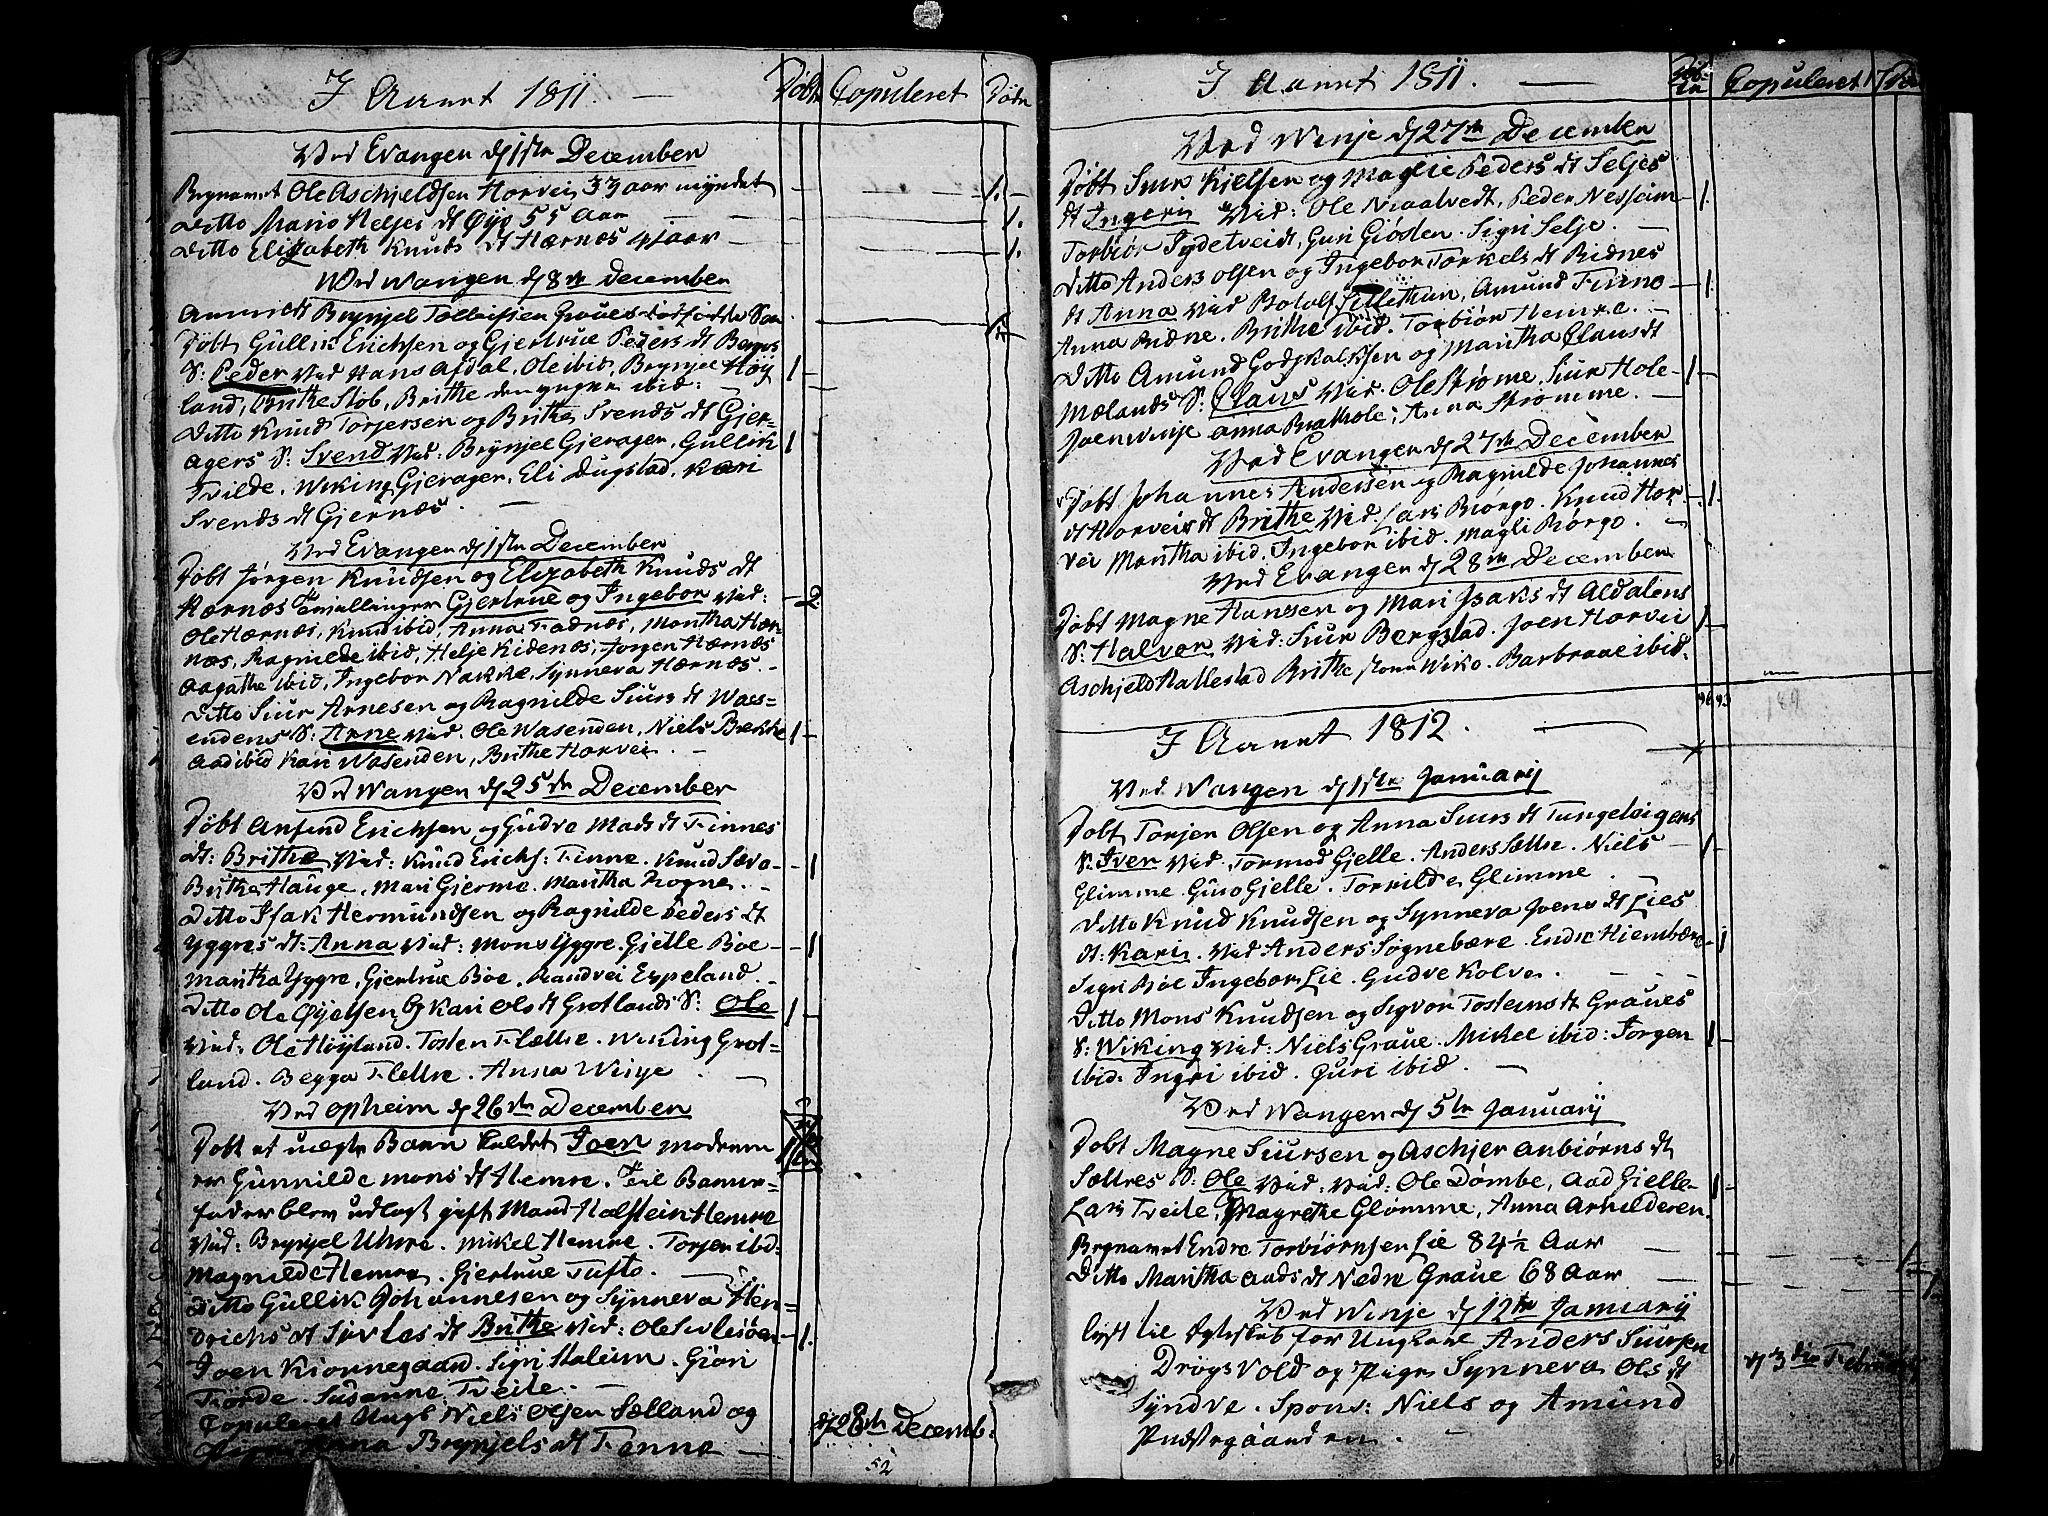 I Aaret 1811. Døbte Copuleret Døde
Ved Evangen d 1ste December
Begravet Ole Aschjeldsen Horvei 33 aar myndet 1.
Ditto Mario Heljes dt Øye 55 Aar 1.
Ditto Elizabeth Knuds dt Hærnes 41 aar 1.
Ved Wangen d 8de December
Anmeldt Brynjel Tollevsen Graues dødfødde Søn
Døbt Gullik Erichsen og Gjertrue Peders dt Berges
S: Peder Vid Hans Afdal, Ole ibid, Brynjel Høy 1
land, Brithe Støb, Brithe den yngre ibid:
Ditto Knud Torjersen og Brithe Svends dt Gjer-
agers S: Svend Vid: Brynjel Gjerager, Gullik 1
Tvilde. Wiking Gjerager. Eli Dugstad. Kari
Svends dt Gjernæs.
Ved Evangen d 1ste December
Døbt Jørgen Knudsen og Elizabeth Knuds dt
Hærnæs Tvillinger Gjertrue og Ingebor Vid: 2.
Ole Hærnæs, Knud ibid, Anna Fadnæs, Martha Hær-
næs, Ragnilde ibid, Helje Kidenæs, Jørgen Hærnæs
Aagathe ibid, Ingebor Nakke, Synneva Hærnæs.
Ditto Siur Arnesen og Ragnilde Siurs dt Waes-
endens S: Arne Vid Ole Wasenden, Niels Brekke 1
Aad ibid Kari Wasenden, Brithe Horvei.
Ved Wangen d 25de December
Døbt Anfind Erichsen og Gudve Mads dt Finnes
dt: Brithe Vid: Knud Erichs: Finne. Knud Sæve 1
Brithe Hauge, Mari Gjerme. Martha Rogne.
Ditto Isak Hermundsen og Ragnilde Peders dt
Yggres dt: Anna Vid: Mons Yggre. Gjelle Bøe 1
Martha Yggre, Gjertrue Bøe. Randvei Eppeland.
Ditto Ole Øyelsen og Kari Ols dt Grotlands S: Ole 1
Vid: Ole Høyland. Tosten Flettre. Wiking Grot-
land. Begga Flettre. Anna Winje
Ved Opheim d 26de December
Døbt et uægte Barn kaldet Joen Moderen 1
er Gunnilde Mons dt Hemre. Til Barne-
fader blev udlagt gift Mand Halstein Hemre
Vid: Brynjel Uhre. Mikel Hemre. Torjer ibd:
Magnilde Hemre. Gjertrue Tufto.
Ditto Gullik Johannesen og Synneva Hen-
drichs dt Sivles dt Brithe Vid: Ole Sivlesøen 1.
Joen Kiønnegaard. Sigri Haleim. Giøri
Fiorde. Susanne Treite.
Copuleret Ungk Niels Olsen Sælland og
Anna Brynjels dt Fenne d 28de Decemb:
52
I Aaret 1811. Døbte Copuleret Døde
Ved Winje d 27de December
Døbt Siur Kielsen og Maglie Peders dt Seljes
dt Ingeri Vid: Ole Nraalvedt, Peder Nesheim 1.
Torbiør Sydetveidt, Guri Giøsten. Sigri Selje.
Ditto Anders Olsen og Ingebor Torkels dt Ridnes
dt Anna Vid Botolf Sillethun, Amund Finno 1.
Anna Ridne. Brithe ibid. Torbiør Hemre.
Ditto Amund Godskalksen og Maritha Claus dt
Mælands S: Claus Vid. Ole Strøme, Siur Hole 1
Joen Winje Anna Brathole; Anna Strømme.
Ved Evangen d 27de December
Døbt Johannes Andersen og Ragnilde Johannes
dt Horveis dt Brithe Vid. Lars Biørgo. Knud Hor 1.
vei Martha ibid. Ingebor ibid. Magli Biørgo.
Ved Evangen d 28de December
Døbt Magne Hansen og Mari Isaks dt Aldalens
S: Halvor Vid: Siur Bergstad. Joen Horvei 1
Aschjeld Hallestad Brithe store Wiko. Barbraae ibid.
96 93 189
I Aaret 1812.
Ved Wangen d 1ste Januarij
Døbt Torjer Olsen og Anna Siurs dt Tungeteigens
S: Iver Vid. Tormod Gjelle. Anders Sættre. Niels 1
Glimme. Guro Gjelle. Torkilde Glimme.
Ditto Knud Knudsen og Synneva Joens dt Lies
dt: Kari. Vid Anders Søgnebære. Endre Hiembære 1
Sigri Bøe Ingebor Lie. Gudve Kolve.
Ditto Mons Knudsen og Sigvor Tosteins dt Graues
S: Wiking Vid: Niels Graue. Mikel ibid: Jørgen 1
ibid: Ingri ibid. Guri ibid.
Ved Wangen d 5te Januarij
Døbt Magne Siursen og Aschjer Anbiørns dt
Sættres S: Ole Vid: Vid: Ole Dømbe, Aad Gjelle 1
Lars Treite, Magrethe Glømme, Anna Arhilderen.
Begravet Endre Torbiørnsen Lie 84½ Aar 1
Ditto Maritha Aads dt Nedre Graue 68 Aar 1
Ved Winje d 12te Januarij
lyst til Egteskab for Ungkarl Anders Siursen
Drøgsvold og Pige Synneva Ols dt d 3die Februarij
Syndve. Spons: Niels og Amund
Prestegaarden.
31